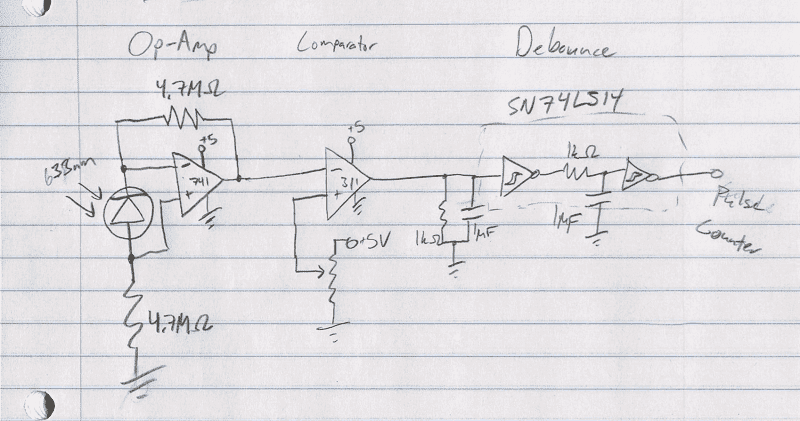 Op-Amp
Comparator
Debounce
4.7MΩ
SN74LS14
+5
+5
633nm
741
311
1kΩ
Pulse
Counter
1kΩ
1MF
1MF
+5V
4.7MΩ